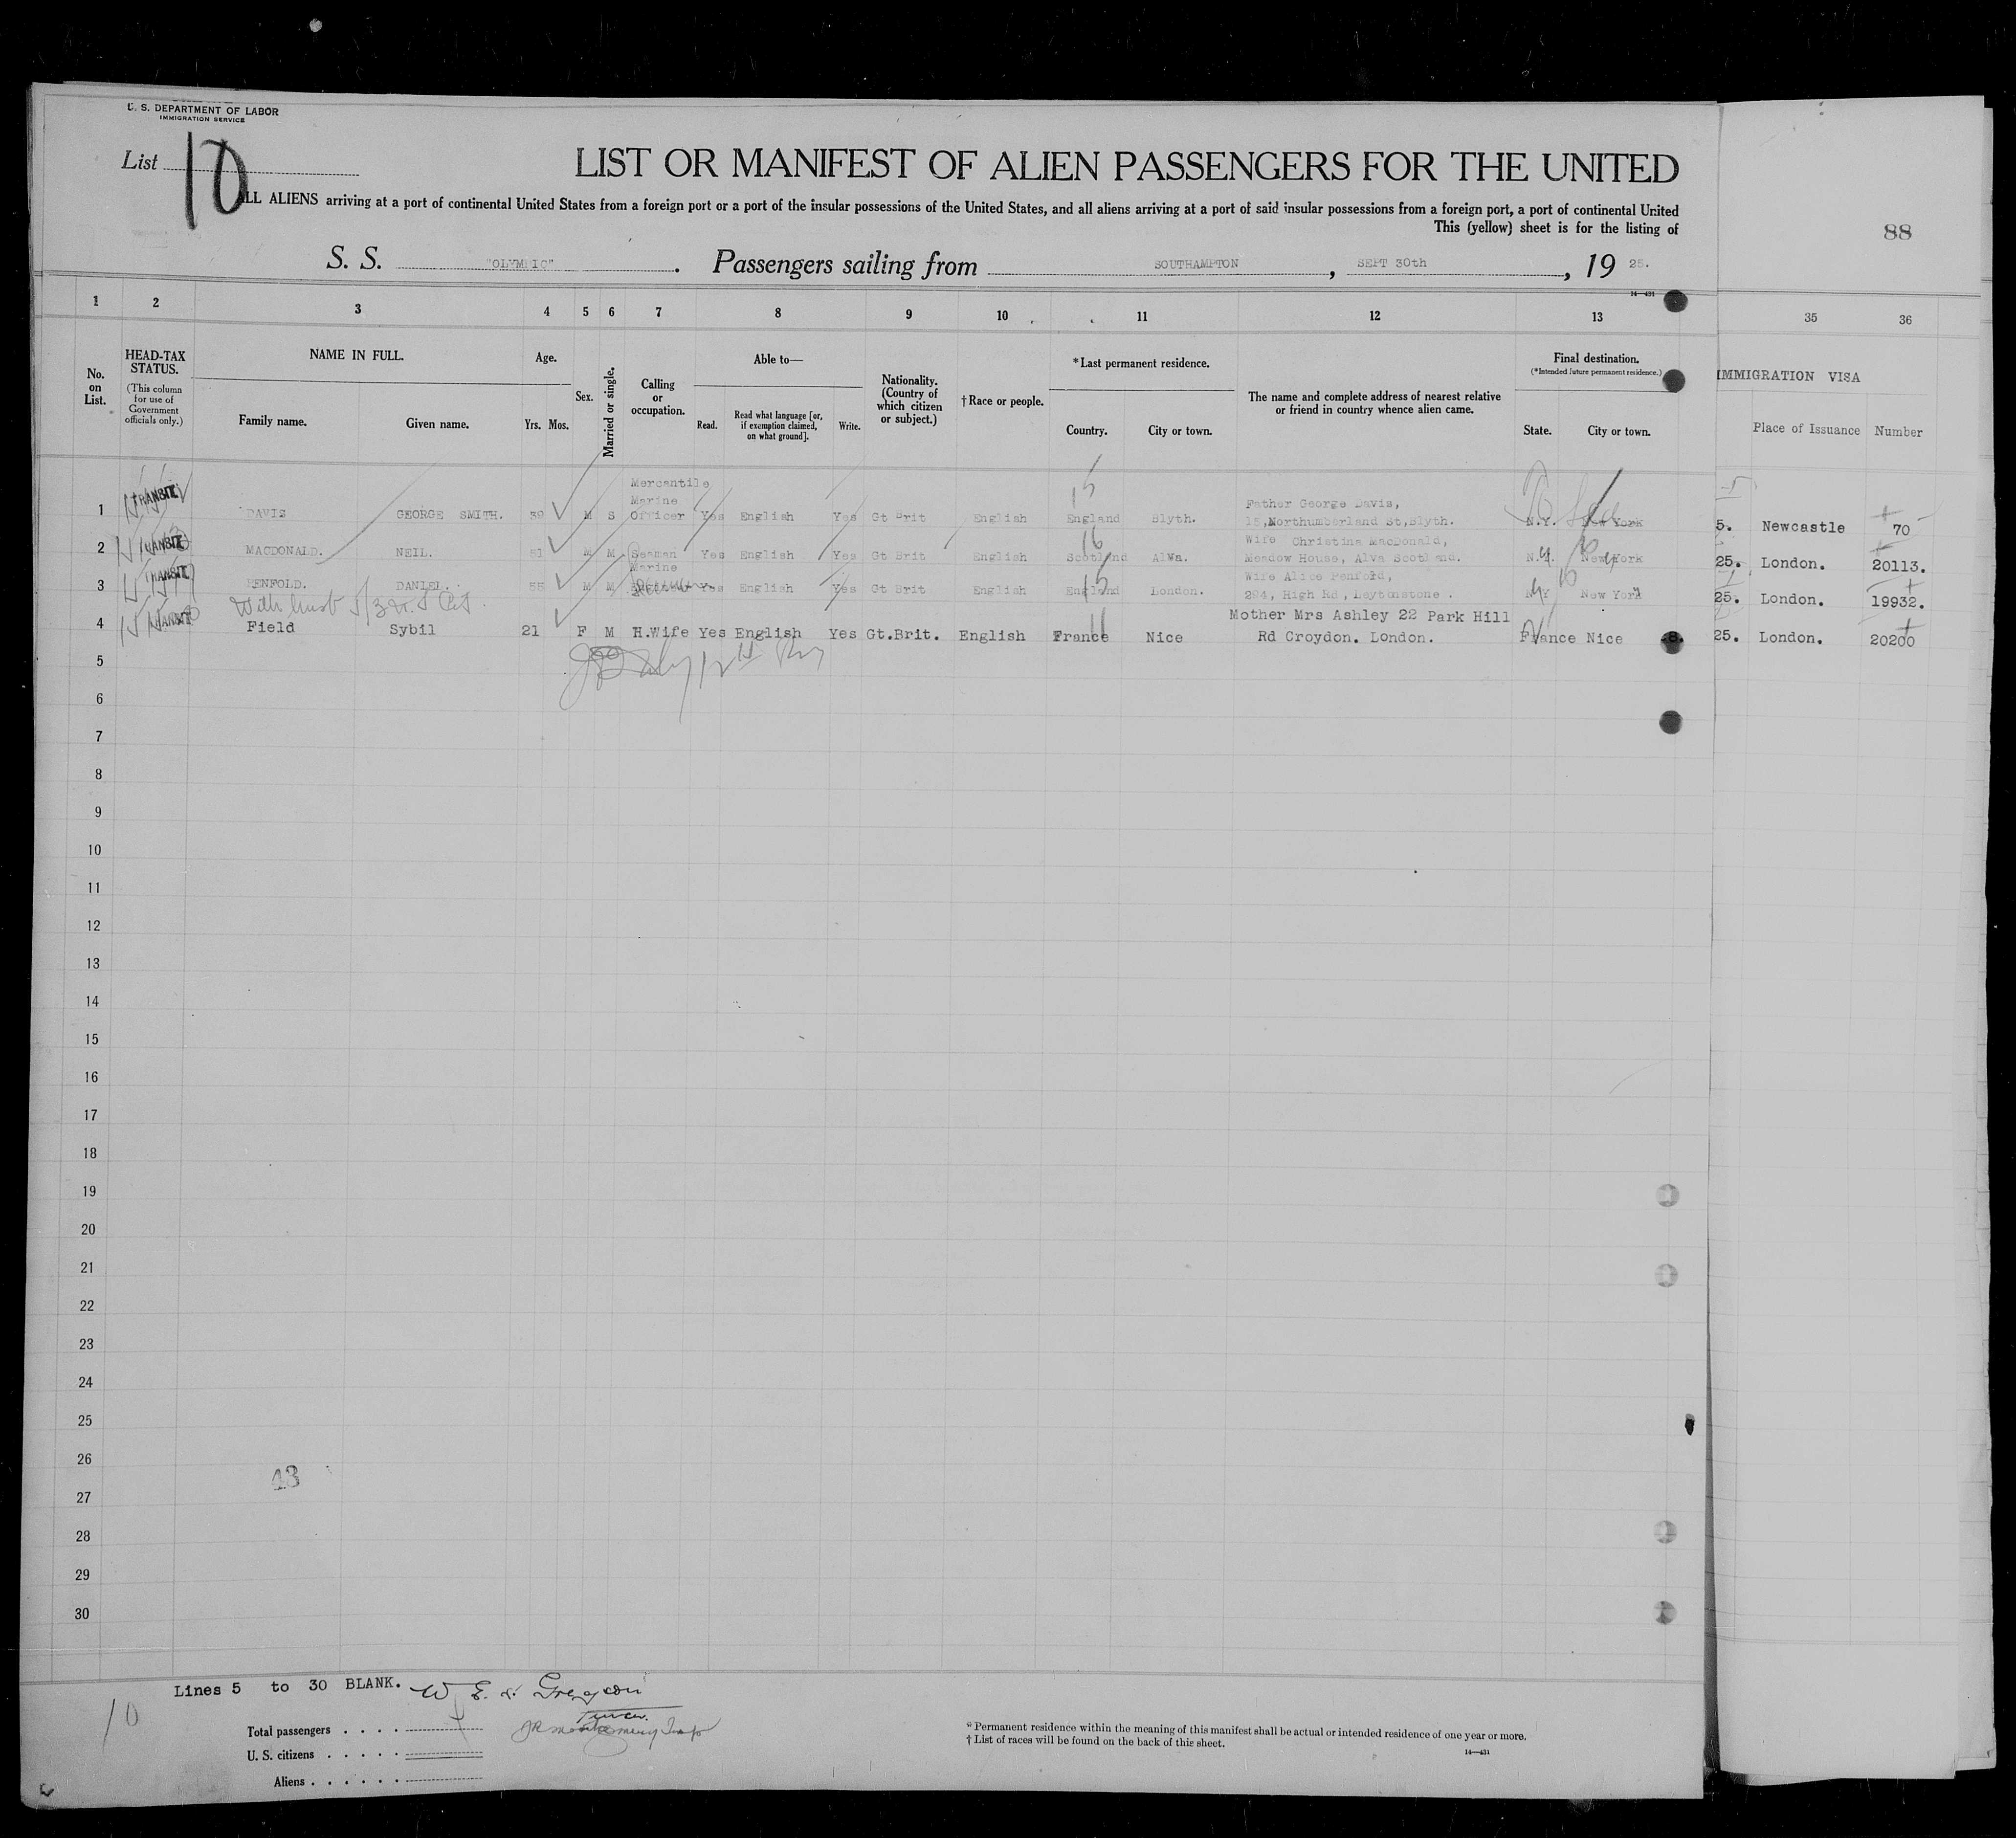 U. S. DEPARTMENT OF LABOR
IMMIGRATION SERVICE
List 10
LIST OR MANIFEST OF ALIEN PASSENGERS FOR THE UNITED
ALL ALIENS arriving at a port of continental United States from a foreign port or a port of the insular possessions of the United States, and all aliens arriving at a port of said insular possessions from a foreign port, a port of continental United
This (yellow) sheet is for the listing of
88
S. S. "OLYMPIC". Passengers sailing from SOUTHAMPTON, SEPT 30th, 19 25.
14—431
1 2 3 4 5 6 7 8 9 10 11 12 13 35 36
No. on List.
HEAD-TAX STATUS.
(This column for use of Government officials only.)
NAME IN FULL.
Family name. Given name.
Age.
Yrs. Mos.
Sex.
Married or single.
Calling or occupation.
Able to—
Read. Read what language [or, if exemption claimed, on what ground]. Write.
Nationality. (Country of which citizen or subject.)
†Race or people.
*Last permanent residence.
Country. City or town.
The name and complete address of nearest relative or friend in country whence alien came.
Final destination.
(*Intended future permanent residence.)
State. City or town.
IMMIGRATION VISA
Place of Issuance Number
1 TRANSIT DAVIS GEORGE SMITH. 39 M S Mercantile Marine Officer Yes English Yes Gt Brit English England Blyth. Father George Davis, 15,Northumberland St,Blyth. N.Y. New York 5. Newcastle 70
2 TRANSIT MACDONALD. NEIL. 51 M M Seaman Yes English Yes Gt Brit English Scotland Alva. Wife Christina MacDonald, Meadow House, Alva Scotland. N.Y. New York 25. London. 20113.
3 TRANSIT PENFOLD. DANIEL. 55 M M Marine Yes English Yes Gt Brit English England London. Wife Alice Penfold, 294, High Rd, Leytonstone. N.Y. New York 25. London. 19932.
With husb
4 TRANSIT Field Sybil 21 F M H.Wife Yes English Yes Gt.Brit. English France Nice Mother Mrs Ashley 22 Park Hill Rd Croydon. London. France Nice 25. London. 20200
5
6
7
8
9
10
11
12
13
14
15
16
17
18
19
20
21
22
23
24
25
26
43
27
28
29
30
Lines 5 to 30 BLANK.
10
Total passengers . . . .
U. S. citizens . . . . .
Aliens . . . . . .
* Permanent residence within the meaning of this manifest shall be actual or intended residence of one year or more.
† List of races will be found on the back of this sheet.
14—431